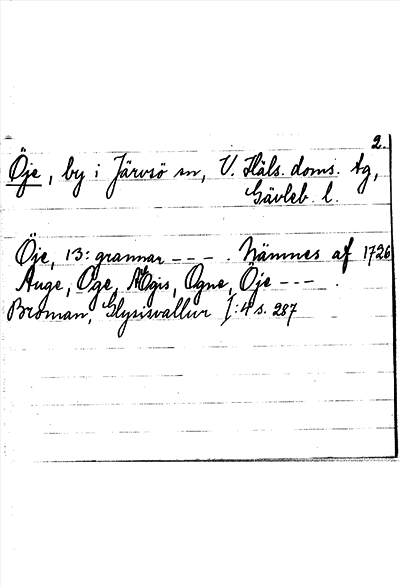 2.
Öje, by i Järvsö sn, V. Häls. doms. tg,
Gävleb. l.
Öje, 13: grannar - - - . Nämnes af 1726
Auge, Öge, Ögis, Ogne, Öje - - - .
Broman, Glysisvallur I: 4 s. 287